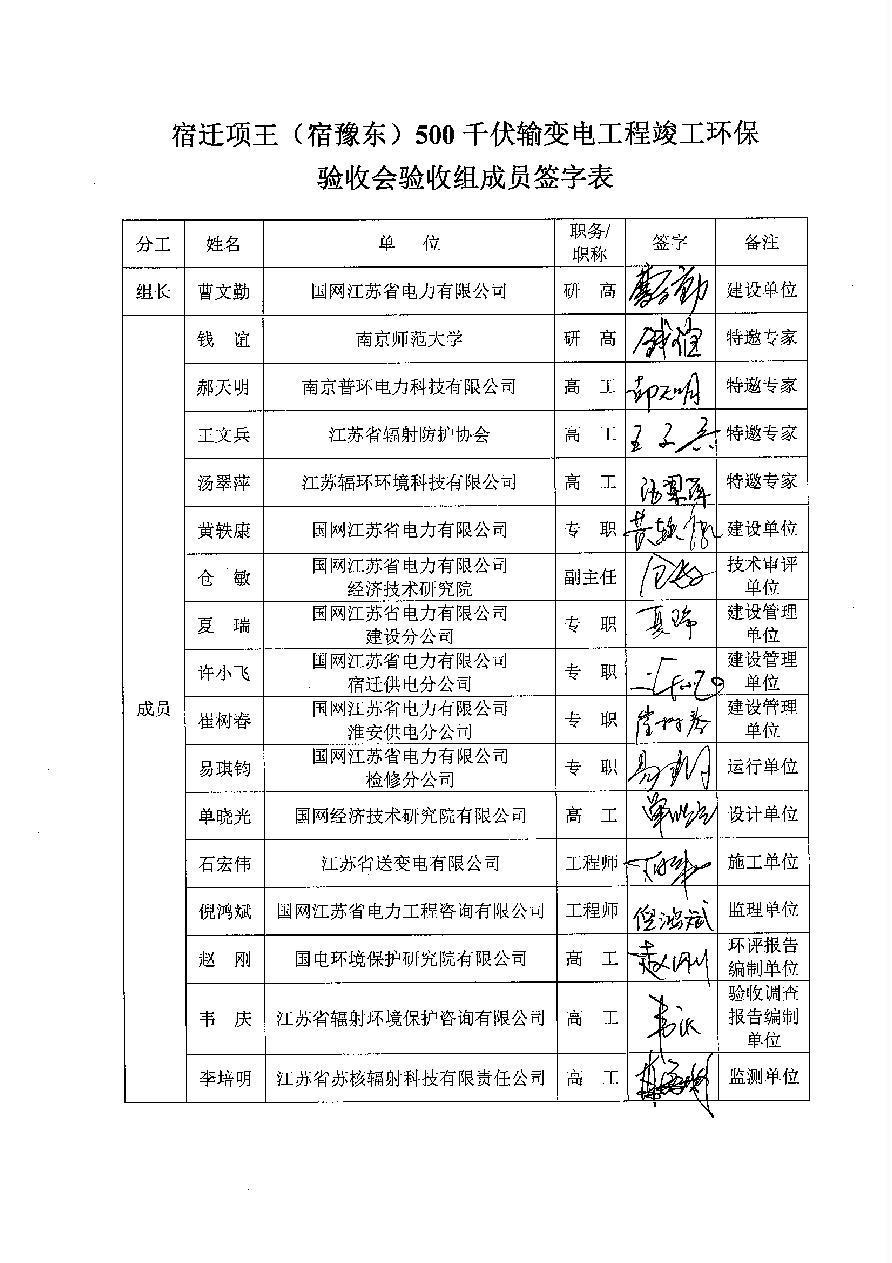 宿迁项王（宿豫东）500千伏输变电工程竣工环保
验收会验收组成员签字表
分工 姓名 单 位 职务/职称 签字 备注
组长 曹文勤 国网江苏省电力有限公司 研 高 曹文勤 建设单位
成员
钱 谊 南京师范大学 研 高 钱谊 特邀专家
郝天明 南京普环电力科技有限公司 高 工 郝天明 特邀专家
王文兵 江苏省辐射防护协会 高 工 王文兵 特邀专家
汤翠萍 江苏辐环环境科技有限公司 高 工 汤翠萍 特邀专家
黄轶康 国网江苏省电力有限公司 专 职 黄轶康 建设单位
仓 敏 国网江苏省电力有限公司经济技术研究院 副主任 仓敏 技术审评单位
夏 瑞 国网江苏省电力有限公司建设分公司 专 职 夏瑞 建设管理单位
许小飞 国网江苏省电力有限公司宿迁供电分公司 专 职 建设管理单位
崔树春 国网江苏省电力有限公司淮安供电分公司 专 职 崔树春 建设管理单位
易琪钧 国网江苏省电力有限公司检修分公司 专 职 运行单位
单晓光 国网经济技术研究院有限公司 高 工 单晓光 设计单位
石宏伟 江苏省送变电有限公司 工程师 施工单位
倪鸿斌 国网江苏省电力工程咨询有限公司 工程师 倪鸿斌 监理单位
赵 刚 国电环境保护研究院有限公司 高 工 赵刚 环评报告编制单位
韦 庆 江苏省辐射环境保护咨询有限公司 高 工 韦庆 验收调查报告编制单位
李培明 江苏省苏核辐射科技有限责任公司 高 工 监测单位